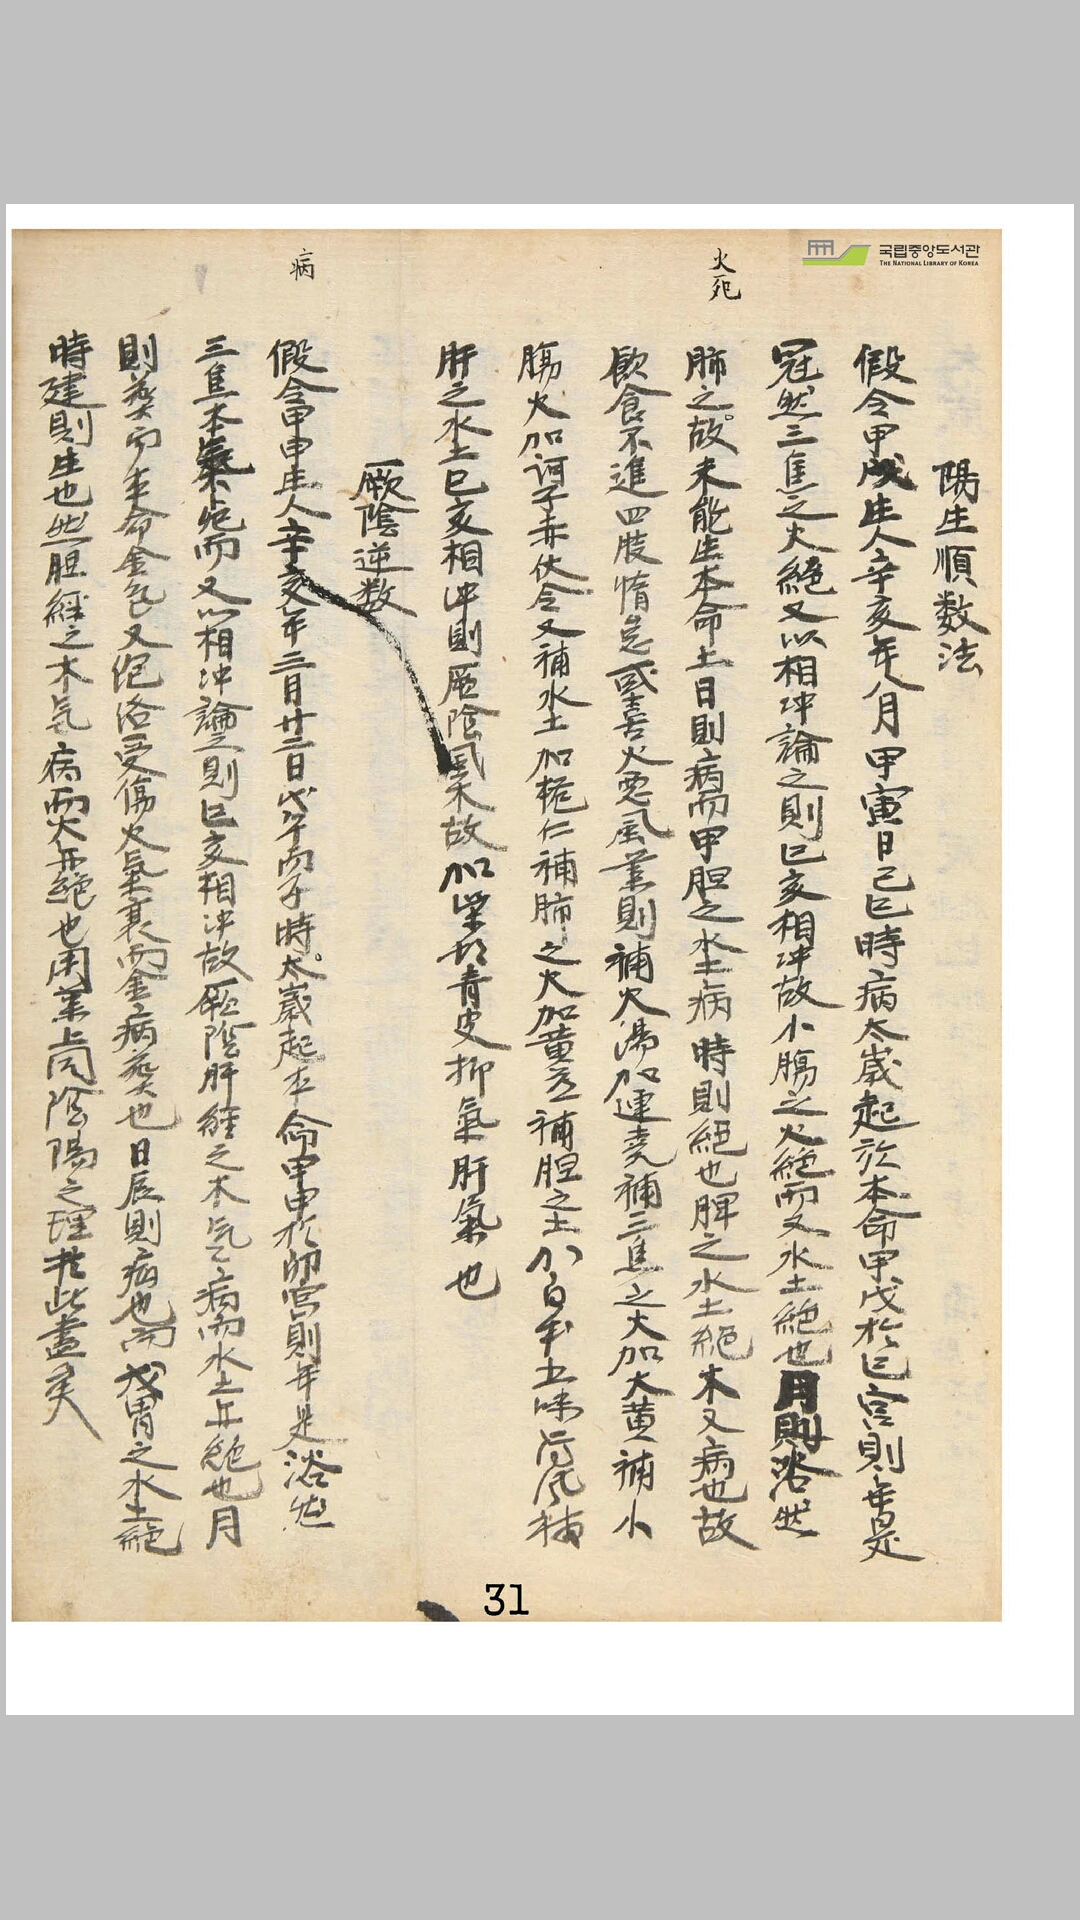 국립중앙도서관
THE NATIONAL LIBRARY OF KOREA
陽生順数法
假令甲戌生人辛亥年八月甲寅日己巳時病太歲起於本命甲戌於巳宮則年是
冠然三焦之火絕又以相冲論之則巳亥相冲故小膓之火絕而又水土絕也月則浴然
火死
肺之故未能生本命土日則病而甲胆之水土病時則絕也脾之水土絕木又病也故
飮食不進四肢惰怠或喜火惡風藥則補火湯加連堯補三焦之火加大黃補小
膓火加訶子赤伏令又補水土加桃仁補肺之火加黃芩補胆之土加白朮五味防風補
肝之水土巳亥相冲則厥陰風木故加柴胡青皮抑氣肝氣也
厥陰逆数
病
假令甲申生人辛亥年三月廿二日戊午丙子時太歲起本命甲申於卯宮則年是浴然
三焦本氣病而又以相冲論之則巳亥相冲故厥陰肝経之木气病而水土並絕也月
則葬而本命金氣又胞洛受傷火氣衰而金病葬也日辰則病也而戊胃之水土絕
時建則生也然胆經之木气病而火並絕也用藥與陰陽之理於此盡矣
31